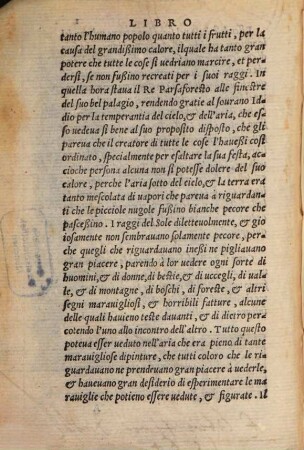 LIBRO
tanto l'humano popolo quanto tutti i frutti, per la
causa del grandißimo calore, ilquale ha tanto gran
potere che tutte le cose si uedriano marcire, et per
dersi, se non fußino recreati per i suoi raggi. In
quella hora staua il Re Parsaforesto alle finestre
del suo bel palagio, rendendo gratie al sourano Id-
dio per la temperantia del cielo, & dell'aria, che es-
so uedeua si bene al suo proposito disposto, che gli
pareua che il creatore di tutte le cose l'haueßi cosi
ordinato, spetialmente per esaltare la sua festa, ac-
cioche persona alcuna non si potesse dolere del suo
calore, perche l'aria sotto del cielo, & la terra era
tanto mescolata di uapori che pareua à riguardan-
ti che le picciole nugole fußino bianche pecore che
pasceßino. I raggi del Sole diletteuolmente, & gio
iosamente non sembrauano solamente pecore, per-
che quegli che riguardauano ineßi ne pigliauano
gran piacere, parendo à lor uedere ogni sorte di
huomini, & di donne, di bestie, & di uccegli, di ual-
le, & di montagne, di boschi, di foreste, & altri
segni marauigliosi, & horribili fatture, alcune
delle quali hauieno teste dauanti, & di dietro per
cotendo l'uno allo incontro dell'altro. Tutto questo
poteua esser ueduto nell'aria che era pieno di tante
marauigliose dipinture, che tutti coloro che le ri-
guardauano ne prendeuano gran piacere à uederle,
& haueuano gran desiderio di esperimentare le ma
rauiglie che potieno essere uedute, & figurate. Il